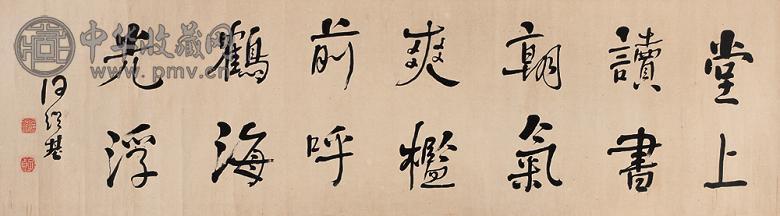 堂上
讀書
朝氣
爽檻
前呼
鶴海
光浮
何紹基
中华收藏网
www.pmv.cn